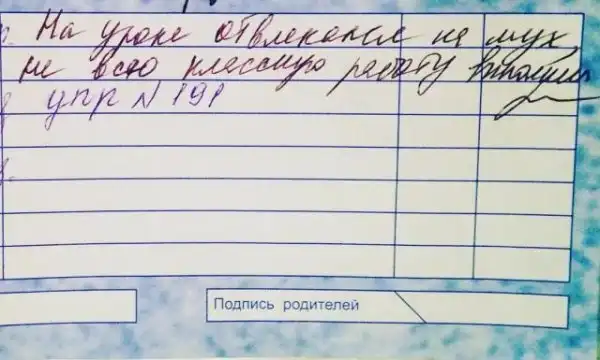 На уроке отвлекался на мух,
не всю классную работу выполнил
упр N 191
Подпись родителей